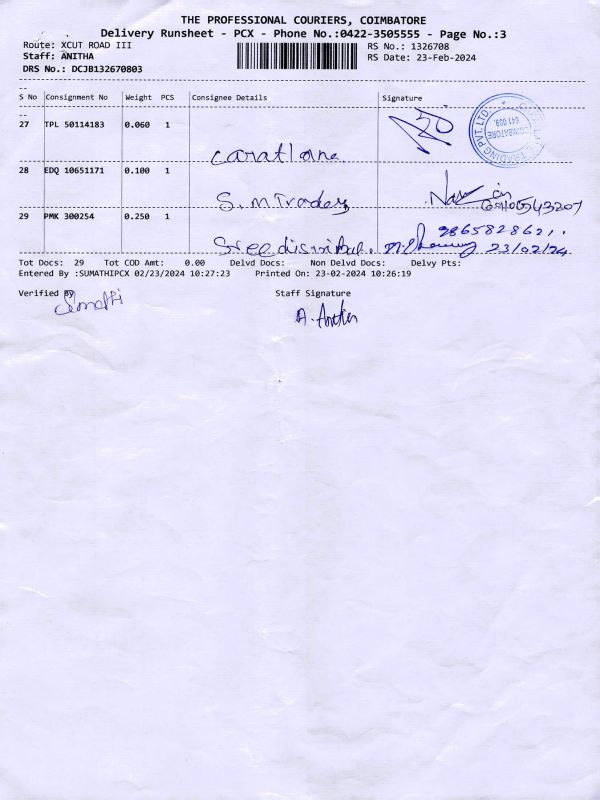 THE PROFESSIONAL COURIERS, COIMBATORE
Delivery Runsheet - PCX - Phone No.:0422-3505555 - Page No.:3
Route: XCUT ROAD III
RS No.: 1326708
Staff: ANITHA
RS Date: 23-Feb-2024
DRS No.: DCJB132670803
S No Consignment No Weight PCS Consignee Details Signature
27 TPL 50114183 0.060 1
caratlane
28 EDQ 10651171 0.100 1
S.M Traders
29 PMK 300254 0.250 1
9865828621
23/02/24
Tot Docs: 29 Tot COD Amt: 0.00 Delvd Docs: Non Delvd Docs: Delvy Pts:
Entered By :SUMATHIPCX 02/23/2024 10:27:23 Printed On: 23-02-2024 10:26:19
Verified By
Staff Signature
Sumathi
A. Anitha
TRADING PVT. LTD.
COIMBATORE